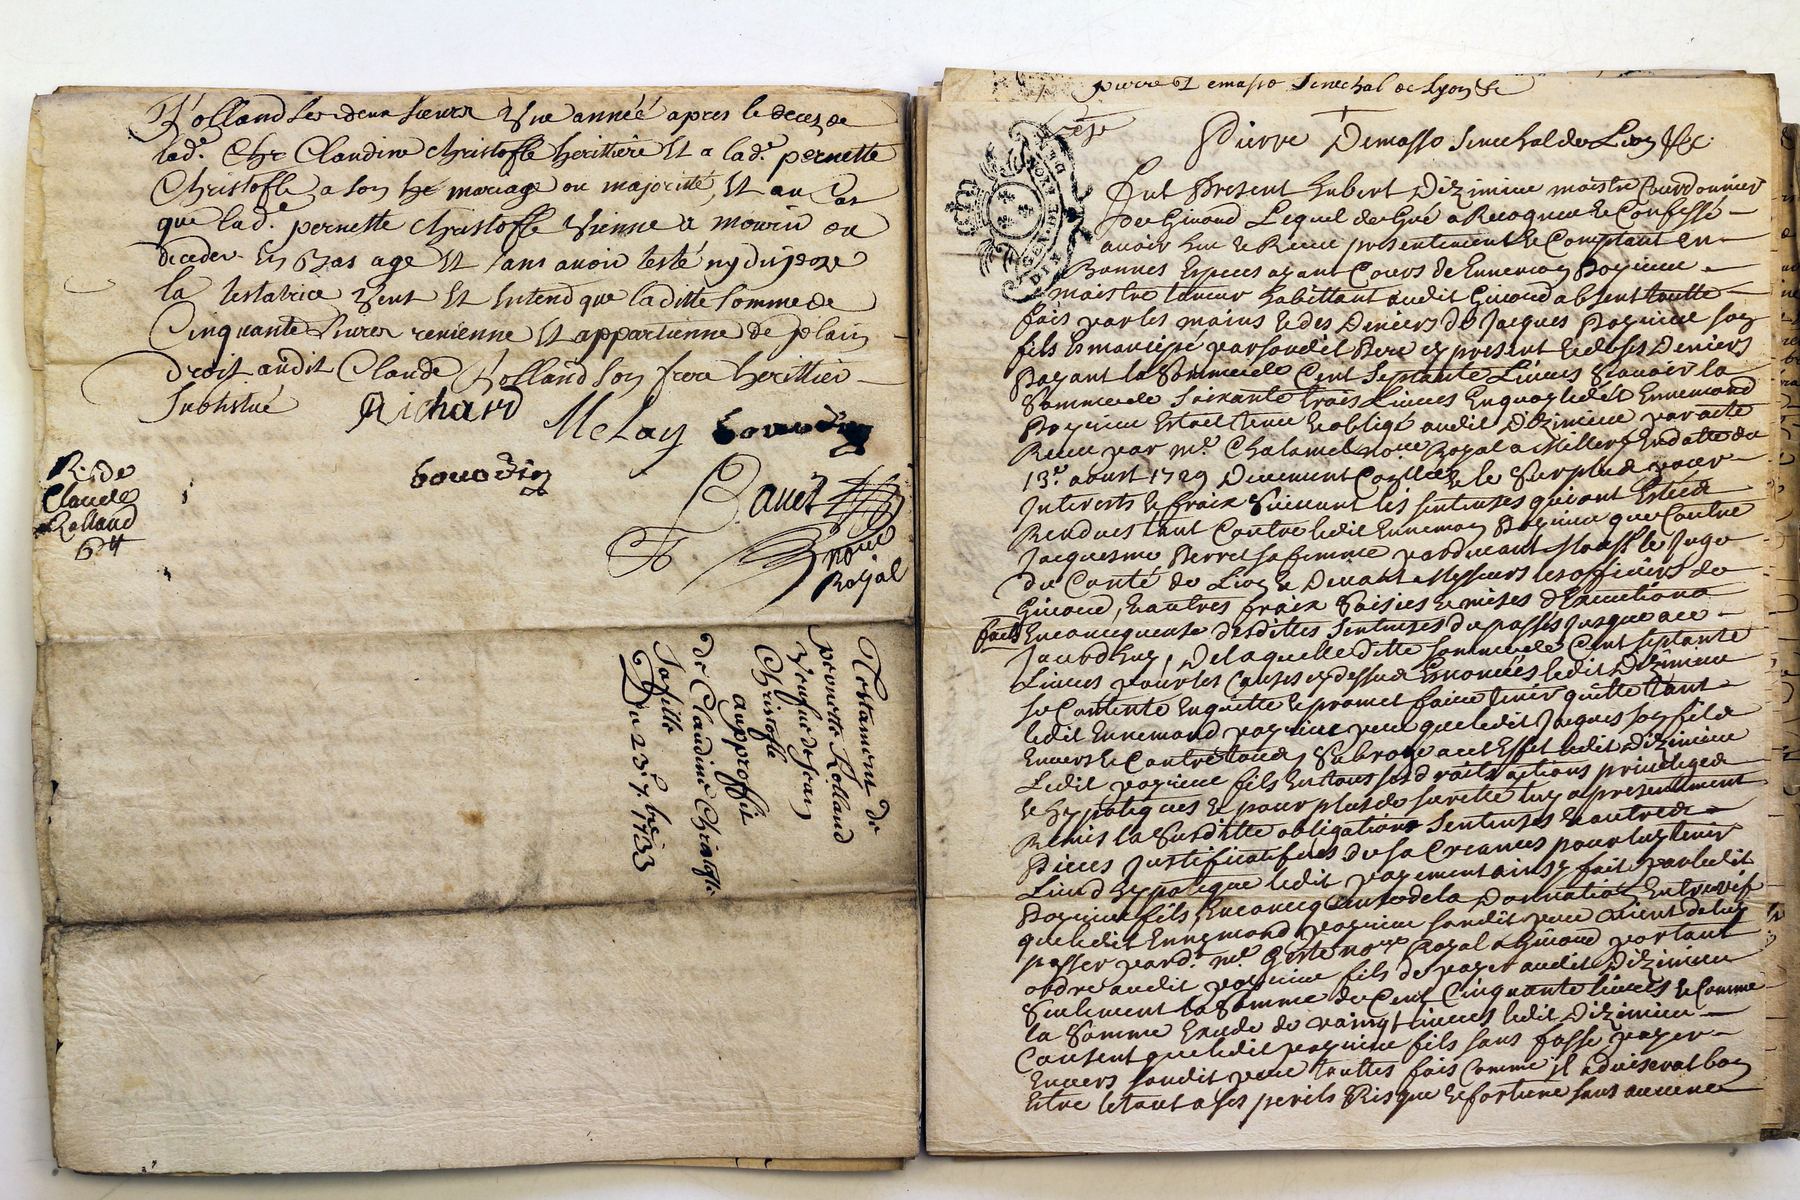 Rolland ses deux sœurs Une année apres le decez de
lad.e Chr Claudine Christofle heritiere Et a lad.e pernette
Christofle a son he mariage ou majorité, Et au Cas
que lad.e pernette Christofle Vienne a mourir ou
deceder En Bas age Et sans avoir testé ny disposé
la testatrice Veut Et Entend que laditte somme de
Cinquante Livres revienne Et appartienne de plain
Droit audit Claude Rolland son frere heritier
substitué
Richard
Melay
R. de
Claude
Rolland
Royal
Testament de
pernette Rolland
Veufve de Jean
Christofle
au proffit
de Claudine Christofle
sa fille
Du 23.e 7.bre 1733
pierre Demasso Senechal de Lyon &c
Pierre Demasso Senechal de Lion &c.
GEN. DE LION
Fut Present hubert Dizimieu maistre Courdonnier
de Givord Lequel de Gré a Recognu & Confessé
avoir heu & Receu presentement & Comptant en
Bonnes Especes ayant Cours de Ennemond
maistre habittant audit Givord absent toutte
fois par les mains & des Deniers de Jacques son
fils Emancipé par sondit Pere cy present & de ses Deniers
Payant la Somme de Cent Septante Livres Scavoir la
Somme de Soixante trois Livres En quoy ledit Ennemond
Estoit tenu & obligé audit Dizimieu par acte
Receu par m.e Chalamel no.re Royal a Millery En datte du
13.e aoust 1729 Deuement Controllé & le Surplus pour
Interests & fraix Suivant les sentences qui ont Estées
Rendues tant Contre ledit Ennemond que Contre
Jacquesme Perret sa femme pardevant Mons.r le Juge
du Comté de Lion & Devant Messieurs les officiers de
Givord, & autres fraix Saisies & mises d'Executions
faits En consequence desdittes Sentences du passé Jusque a ce
Jourd'huy, De laquelle ditte somme de Cent septante
Livres pour les Causes cy dessus Enoncées ledit Dizimieu
se Contente En quitte & promet faire tenir quitte tant
ledit Ennemond pere que ledit Jacques son fils
Envers & Contre tous, Subroge a cet Effet ledit Dizimieu
Ledit fils En tous ses droits actions privileges
& hypoteques & pour plus de surette luy a presentement
Remis la Susditte obligation Sentences & autres
Pieces Justificatives de sa Creance pour luy tenir
Lieu d'hypoteque ledit payement ainsy fait par ledit
fils En consequence de la Donnation Entre vif
que ledit Ennemond sondit pere vient de luy
passer pard.t m.e no.re Royal a Givord portant
ordre audit fils de payer audit Dizimieu
Seulement la Somme de Cent Cinquante livres & Comme
la Somme Exede de vaingt livres ledit Dizimieu
Consent que ledit fils sans fasse payer
Envers sondit pere touttes fois Comme il advisera bon
Estre le tout a ses perils Risque & fortune sans aucune